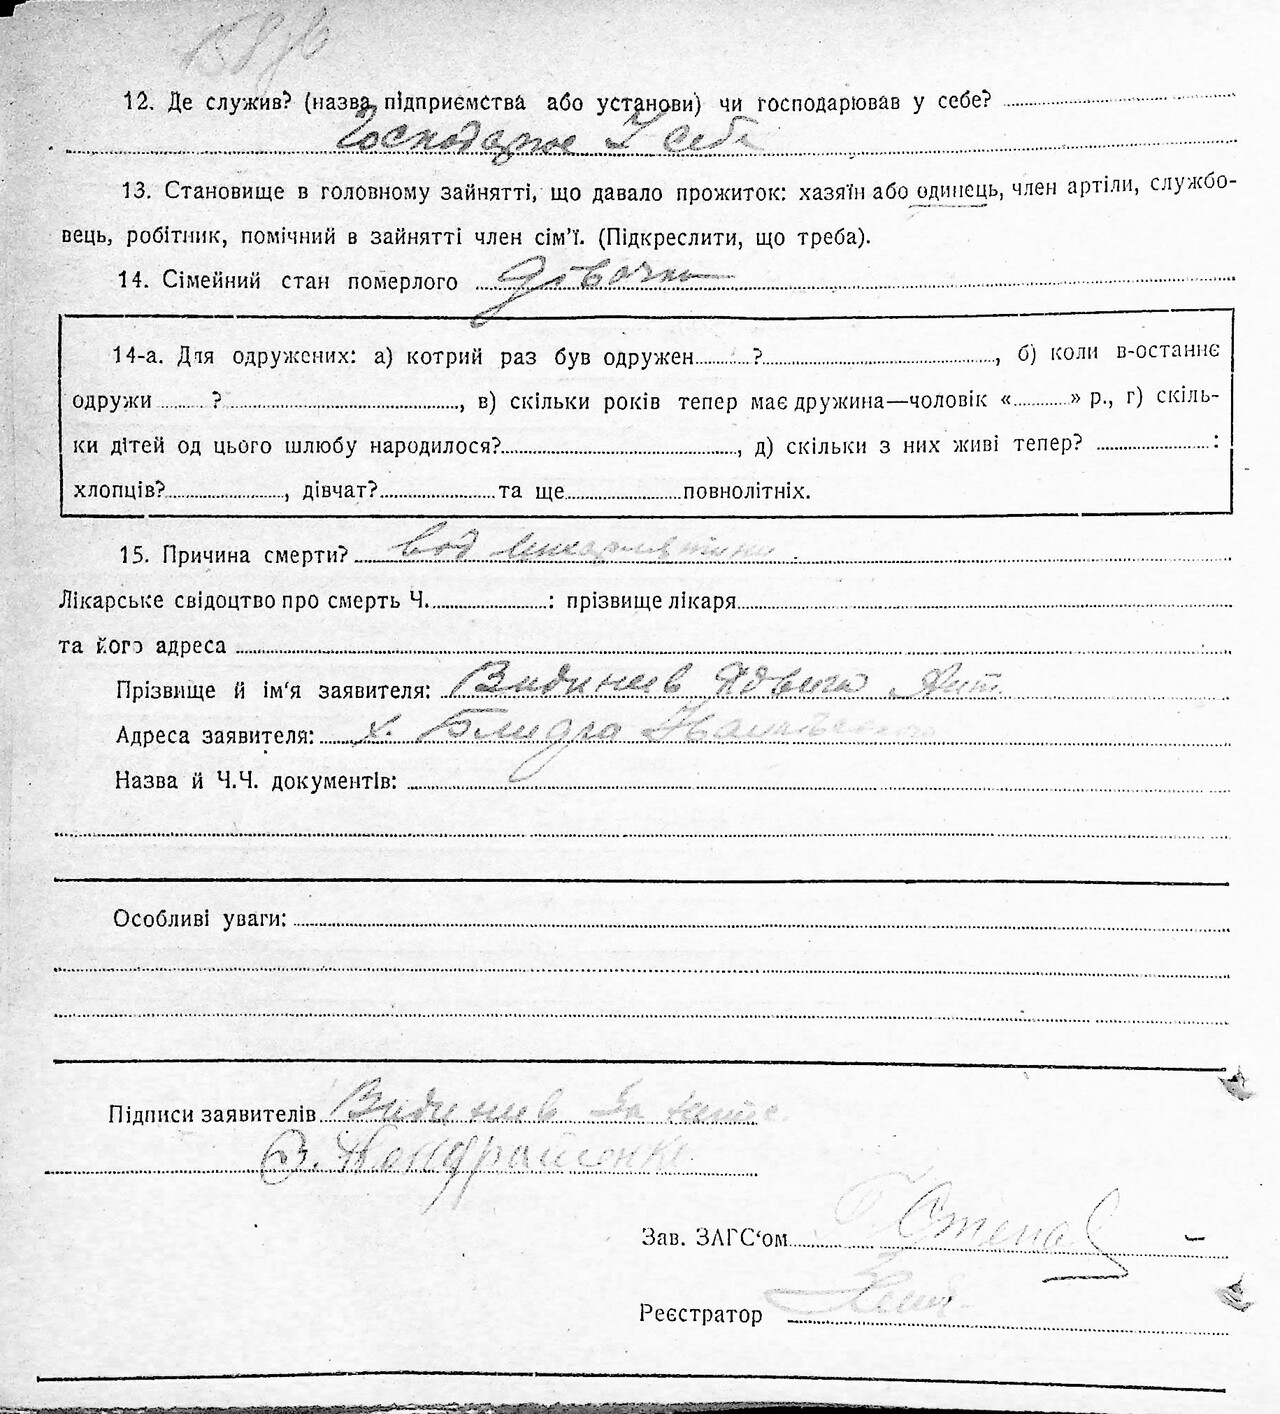 12. Де служив? (назва підприємства або установи) чи господарював у себе?
Господарює у себе
13. Становище в головному зайнятті, що давало прожиток: хазяїн або одинець, член артіли, службо-
вець, робітник, помічний в зайнятті член сім'ї. (Підкреслити, що треба).
14. Сімейний стан померлого дівочка
14-а. Для одружених: а) котрий раз був одружен ? , б) коли в-останнє
одружи ? , в) скільки років тепер має дружина—чоловік « » р., г) скіль-
ки дітей од цього шлюбу народилося? , д) скільки з них живі тепер? :
хлопців? , дівчат? та ще повнолітніх.
15. Причина смерти? від
Лікарське свідоцтво про смерть Ч. : прізвище лікаря
та його адреса
Прізвище й ім'я заявителя: Ант.
Адреса заявителя: х.
Назва й Ч.Ч. документів:
Особливі уваги:
Підписи заявителів
Зав. ЗАГС'ом
Реєстратор